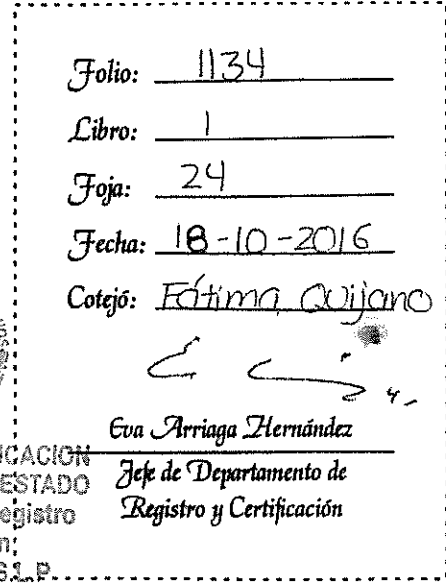 Folio: 1134
Libro: 1
Foja: 24
Fecha: 18-10-2016
Cotejó: Fátima Quijano
Eva Arriaga Hernández
Jefe de Departamento de
Registro y Certificación
UCACION
ESTADO
egistro
n,
S.L.P.